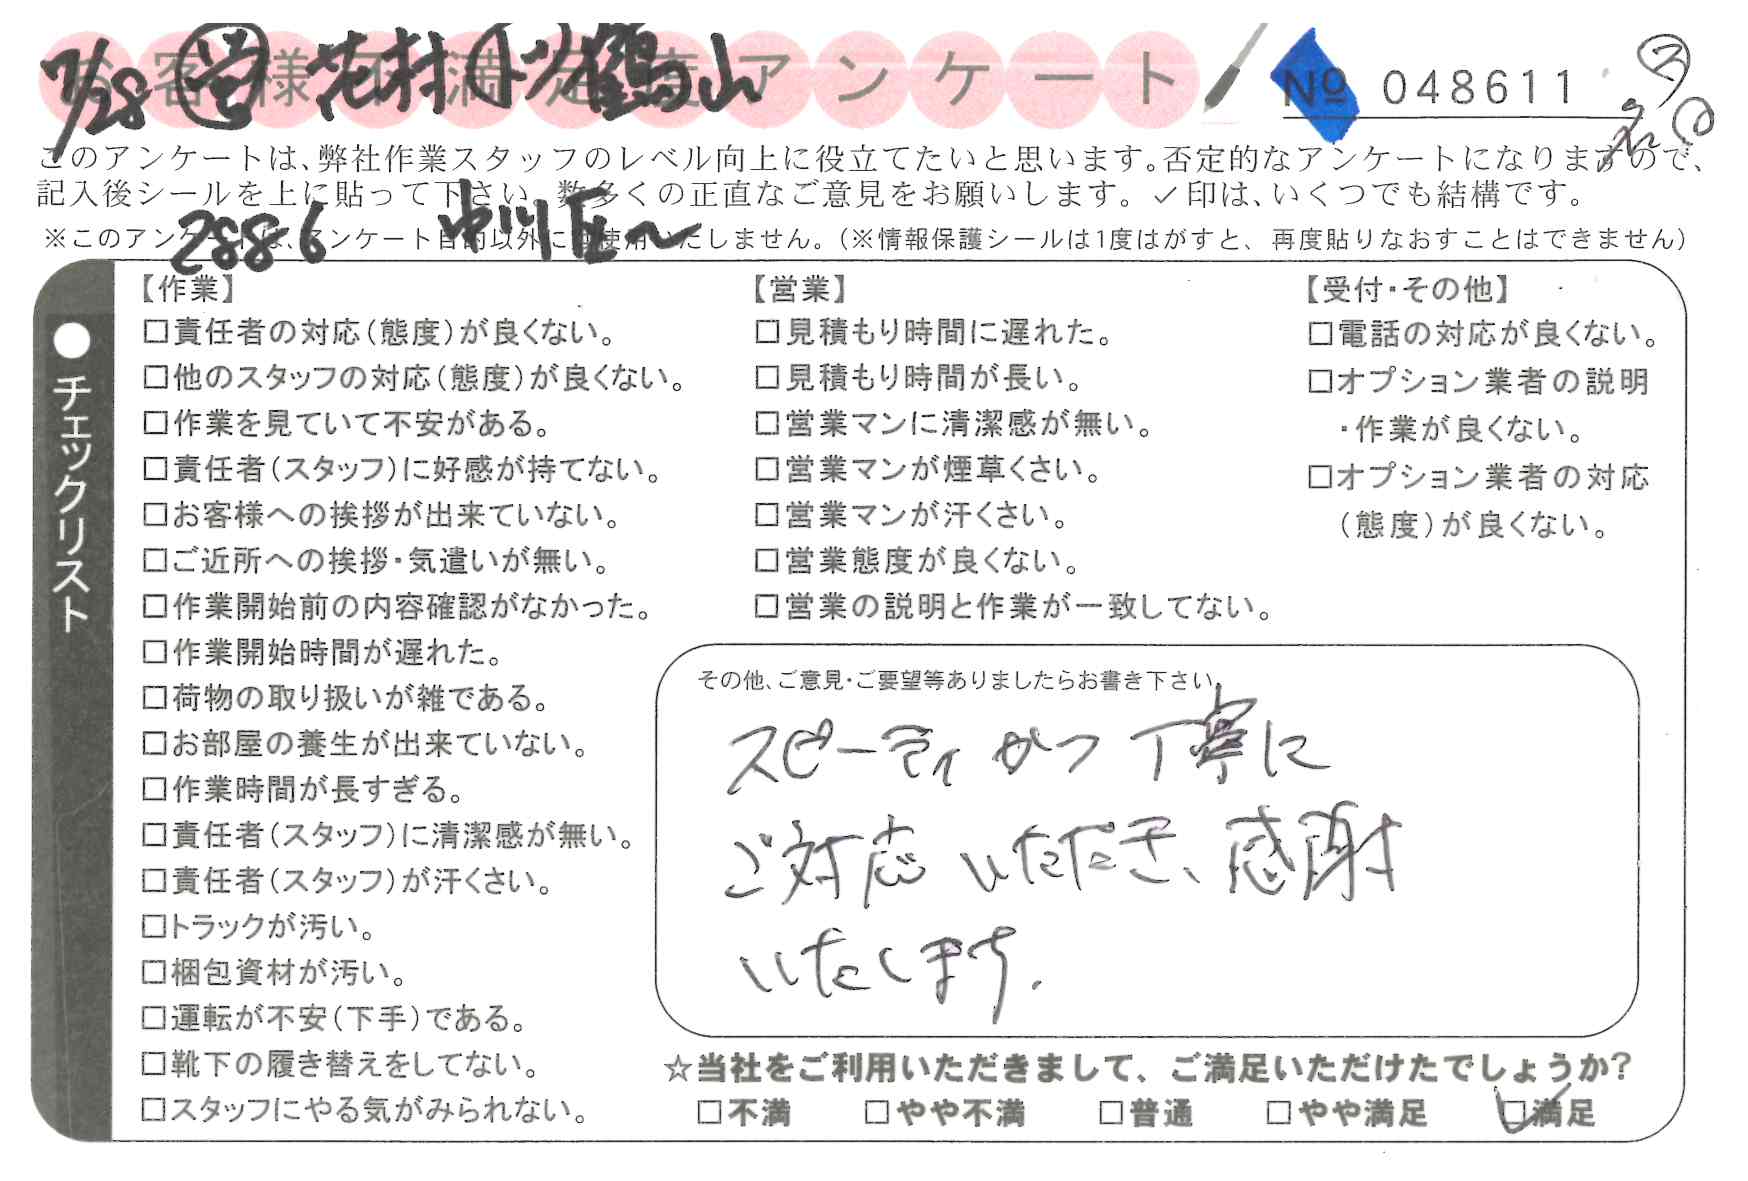 お客様不満足度アンケート
7/28 営 花村 小 鶴山
№ 048611
このアンケートは、弊社作業スタッフのレベル向上に役立てたいと思います。否定的なアンケートになりますので、
記入後シールを上に貼って下さい。数多くの正直なご意見をお願いします。✓印は、いくつでも結構です。
2886 中川区〜
※このアンケートは、アンケート目的以外に使用いたしません。(※情報保護シールは1度はがすと、再度貼りなおすことはできません)
●チェックリスト
【作業】
□責任者の対応(態度)が良くない。
□他のスタッフの対応(態度)が良くない。
□作業を見ていて不安がある。
□責任者(スタッフ)に好感が持てない。
□お客様への挨拶が出来ていない。
□ご近所への挨拶・気遣いが無い。
□作業開始前の内容確認がなかった。
□作業開始時間が遅れた。
□荷物の取り扱いが雑である。
□お部屋の養生が出来ていない。
□作業時間が長すぎる。
□責任者(スタッフ)に清潔感が無い。
□責任者(スタッフ)が汗くさい。
□トラックが汚い。
□梱包資材が汚い。
□運転が不安(下手)である。
□靴下の履き替えをしてない。
□スタッフにやる気がみられない。
【営業】
□見積もり時間に遅れた。
□見積もり時間が長い。
□営業マンに清潔感が無い。
□営業マンが煙草くさい。
□営業マンが汗くさい。
□営業態度が良くない。
□営業の説明と作業が一致してない。
【受付・その他】
□電話の対応が良くない。
□オプション業者の説明
・作業が良くない。
□オプション業者の対応
(態度)が良くない。
その他、ご意見・ご要望等ありましたらお書き下さい。
スピーディかつ丁寧に
ご対応いただき、感謝
いたします.
☆当社をご利用いただきまして、ご満足いただけたでしょうか?
□不満 □やや不満 □普通 □やや満足 ☑満足